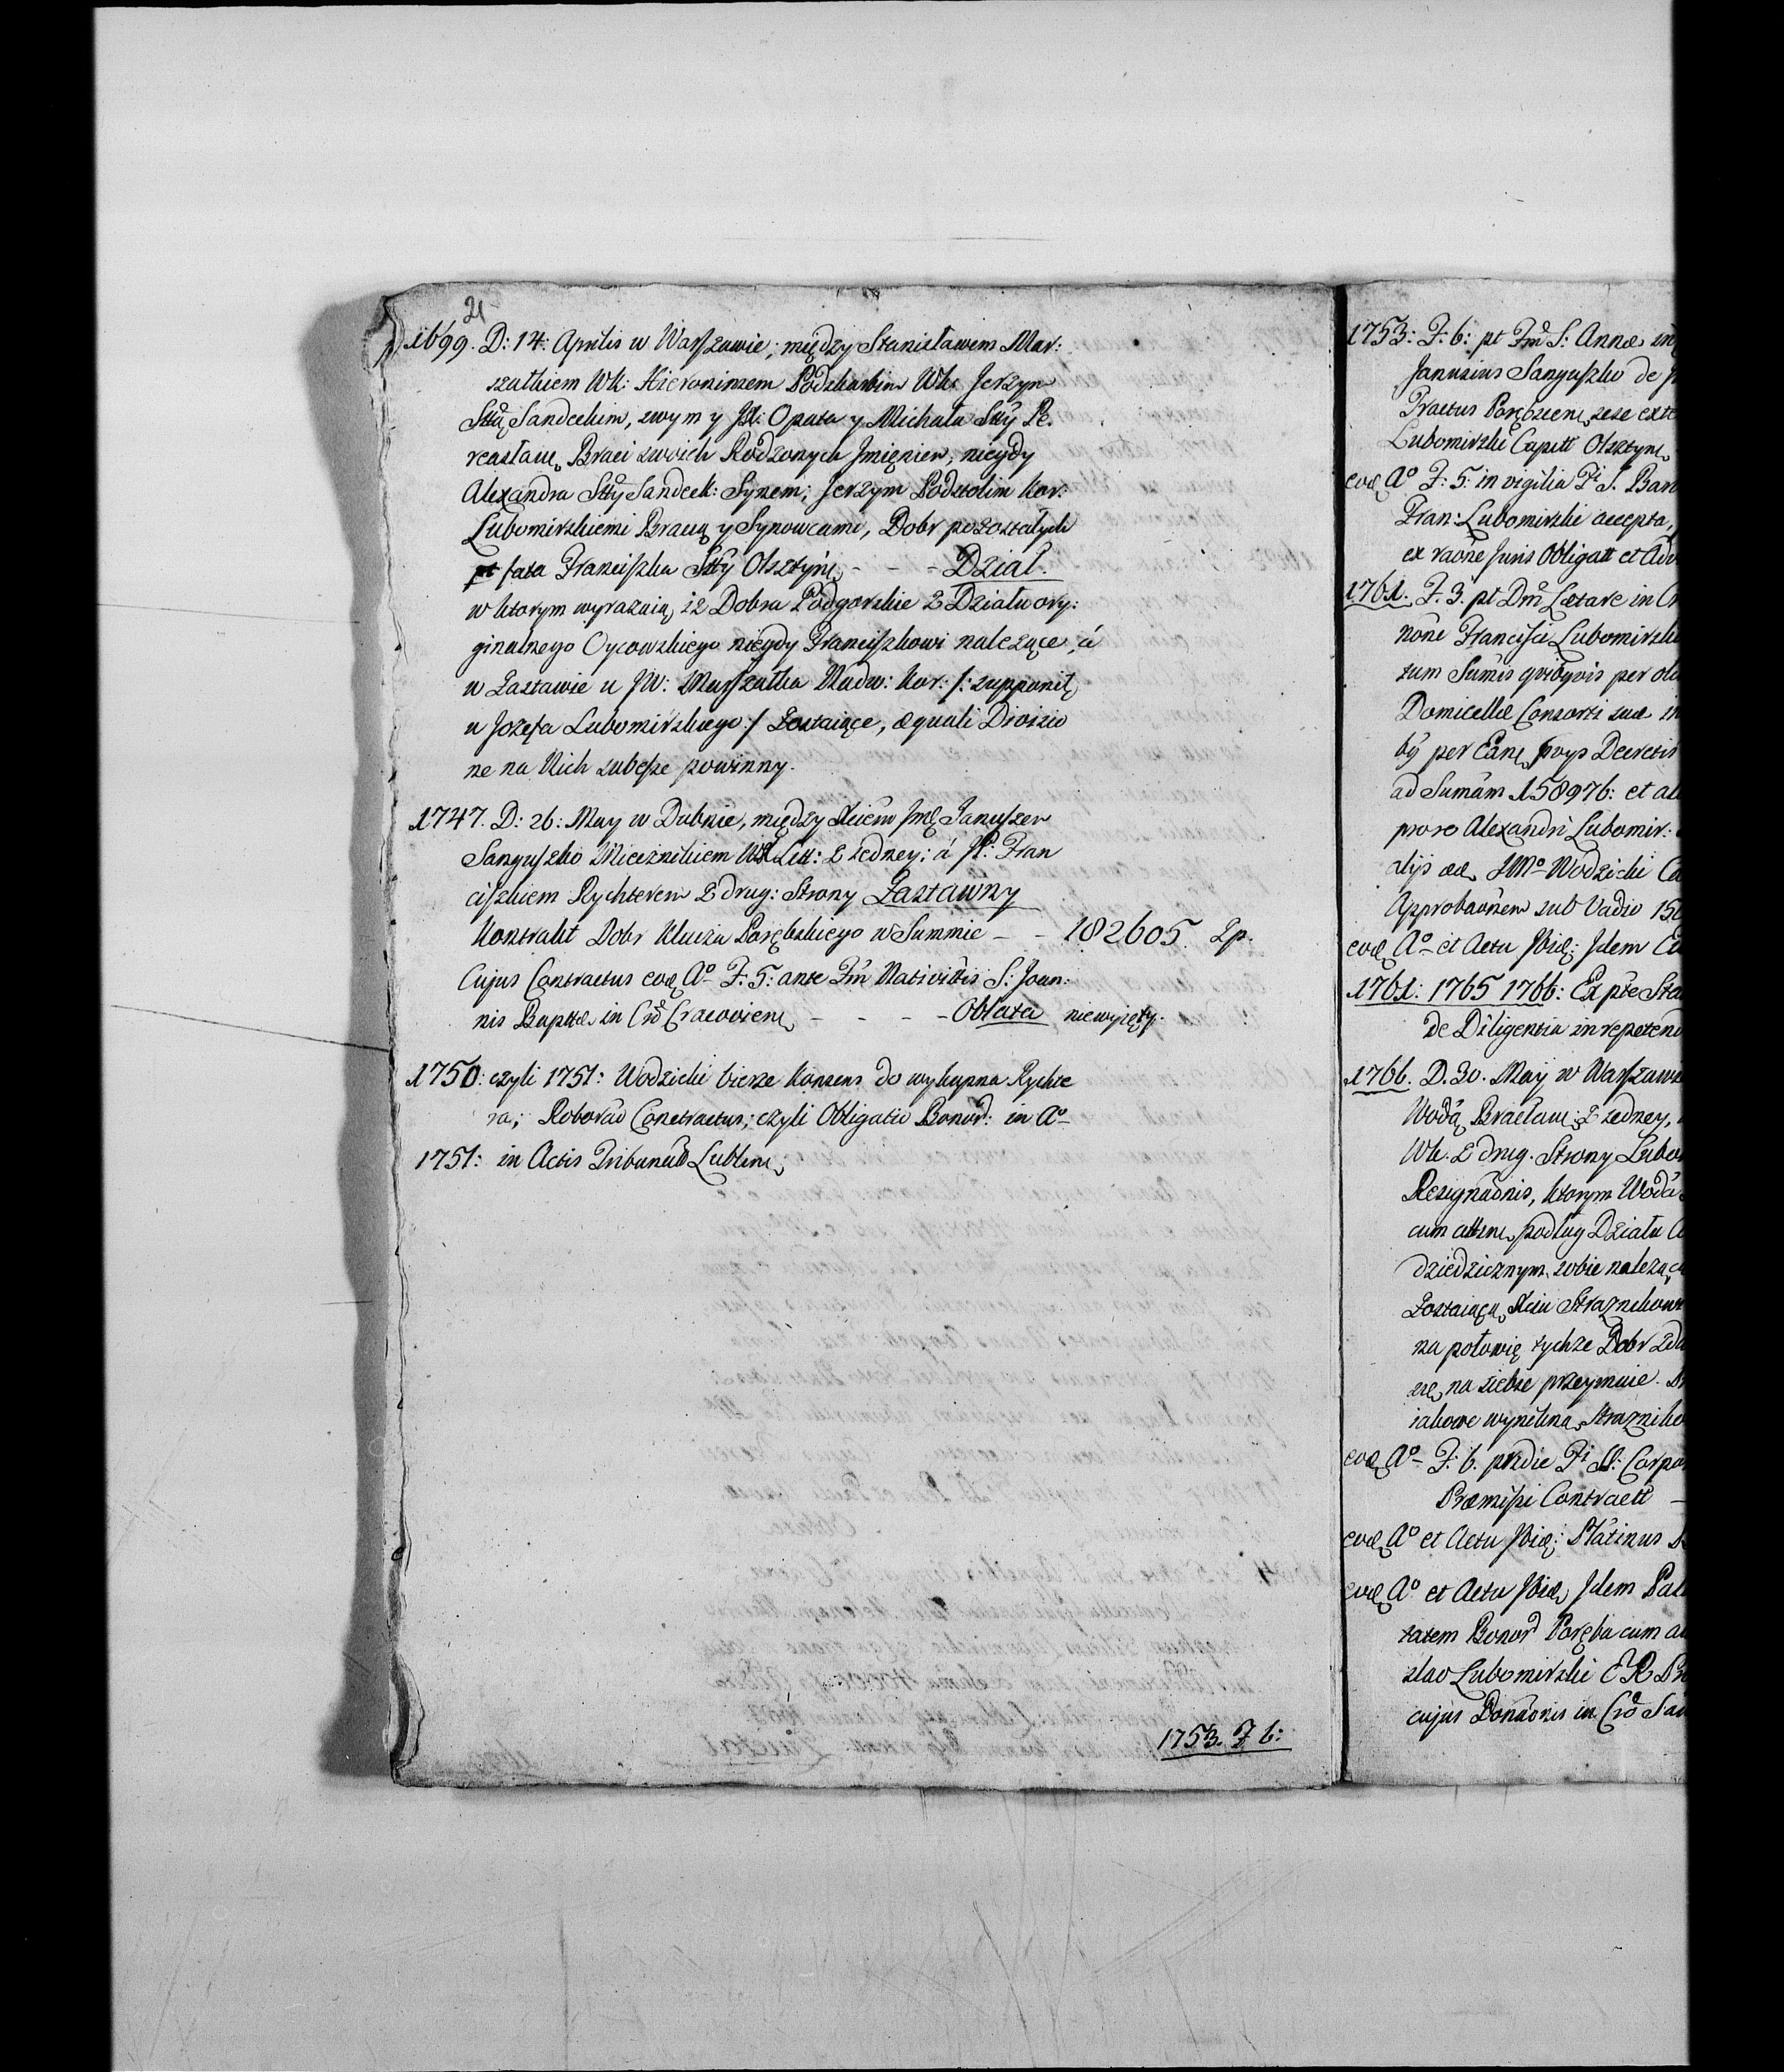 21
1699. D: 14: Aprilis w Warszawie; między Stanisławem Mar:
szałkiem Wk: Hieronimem Podskarbim Wk: Jerzym
Sttą Sandeckim, swym y JX: Opata y Michała Stty Pe.
reasław, Braci swoich Rodzonych Jmięniem, niegdy
Alexandra Stty Sandeck: Synem; Jerzym Podstolim Kor:
Lubomirskiemi Bracią y Synowcami, Dobr pozostałych
pt fata Franciszka Stty Olsztyń, - - - Dział.
w ktorym wyrażaią, iż Dobra Podgorskie z Działu ory:
ginalnego Oycowskiego niegdy Franciszkowi należące, á
w Zastawie u JW: Marszałka Nadw: Kor: /: supponit,
u Jozefa Lubomirskiego :/ zostaiące, æquali Divisio
ne na Nich zubesze powinny.
1747. D: 26: May w Dubnie, między Xciem Jmę Januszem
Sanguszko Miecznikiem WX Litt: z iedney; á JP: Fran
ciszkiem Rychterem z drug: Strony Zastawny
Kontrakt Dobr Klucza Porębskiego w Summie - - 182605. Zp.
Cujus Contractus eod, Aº F. 5: ante Fm Nativittis S: Joan:
nis Baptæ in Crō Cracovien, - - - - Oblata niewyięty.
1750: czyli 1751: Wodzicki bierze Konsens do wykupna Rychte
ra; Roborao Contractus; czyli Obligatio Bonor: in Aº
1751: in Actis Tribunal Lublin,
1753. F 6:
1753: F. 6: pt Fm S: Annæ in
Janusius Sanguszko de
Tractus Porębscen, sese exte
Lubomirski Capitt Olsztyn,
eod, Aº F: 5: in vigilia Fi S. Bar
Fran: Lubomirski accepta,
ex raone Juris Obligatt et Adv
1761. F. 3. pt Dm Lætare in
none Francisci Lubomirski
tum Sumis quibqvis per
Domicellæ Consorti suæ in
by per Eanđ prys Decretis
ad Sumam 158976: et al
prose Alexandri Lubomir:
alijs ad, JMº Wodzicki Ca
Approbaonem sub Vadio 15
eod, Aº et Actu Ibid; Idem
1761: 1765 1766: Ex pte Sta
de Diligentia in repetend
1766. D. 30. May w Warszawie
Wodą Bracław; z iedney,
Wk. z drug. Strony Lubo
Resignaonis, ktorym Woda
cum attin, podług Działu
dziedzicznym sobie należąc
zostaiącą, Xciu Strażnikow
za połowię tychże Dobr
się, na siebie przeymuie.
iakowe wynikną, Strażniko
eod, Aº F. 6. pridie Fi SS: Corpo
Præmissi Contractt -
eod, Aº et Actu Ibid; Platinus
eod, Aº et Actu Ibid, Idem Pal
tatem Bonor Poręba cum
slao Lubomirski ER
cujus Donaonis in Crō